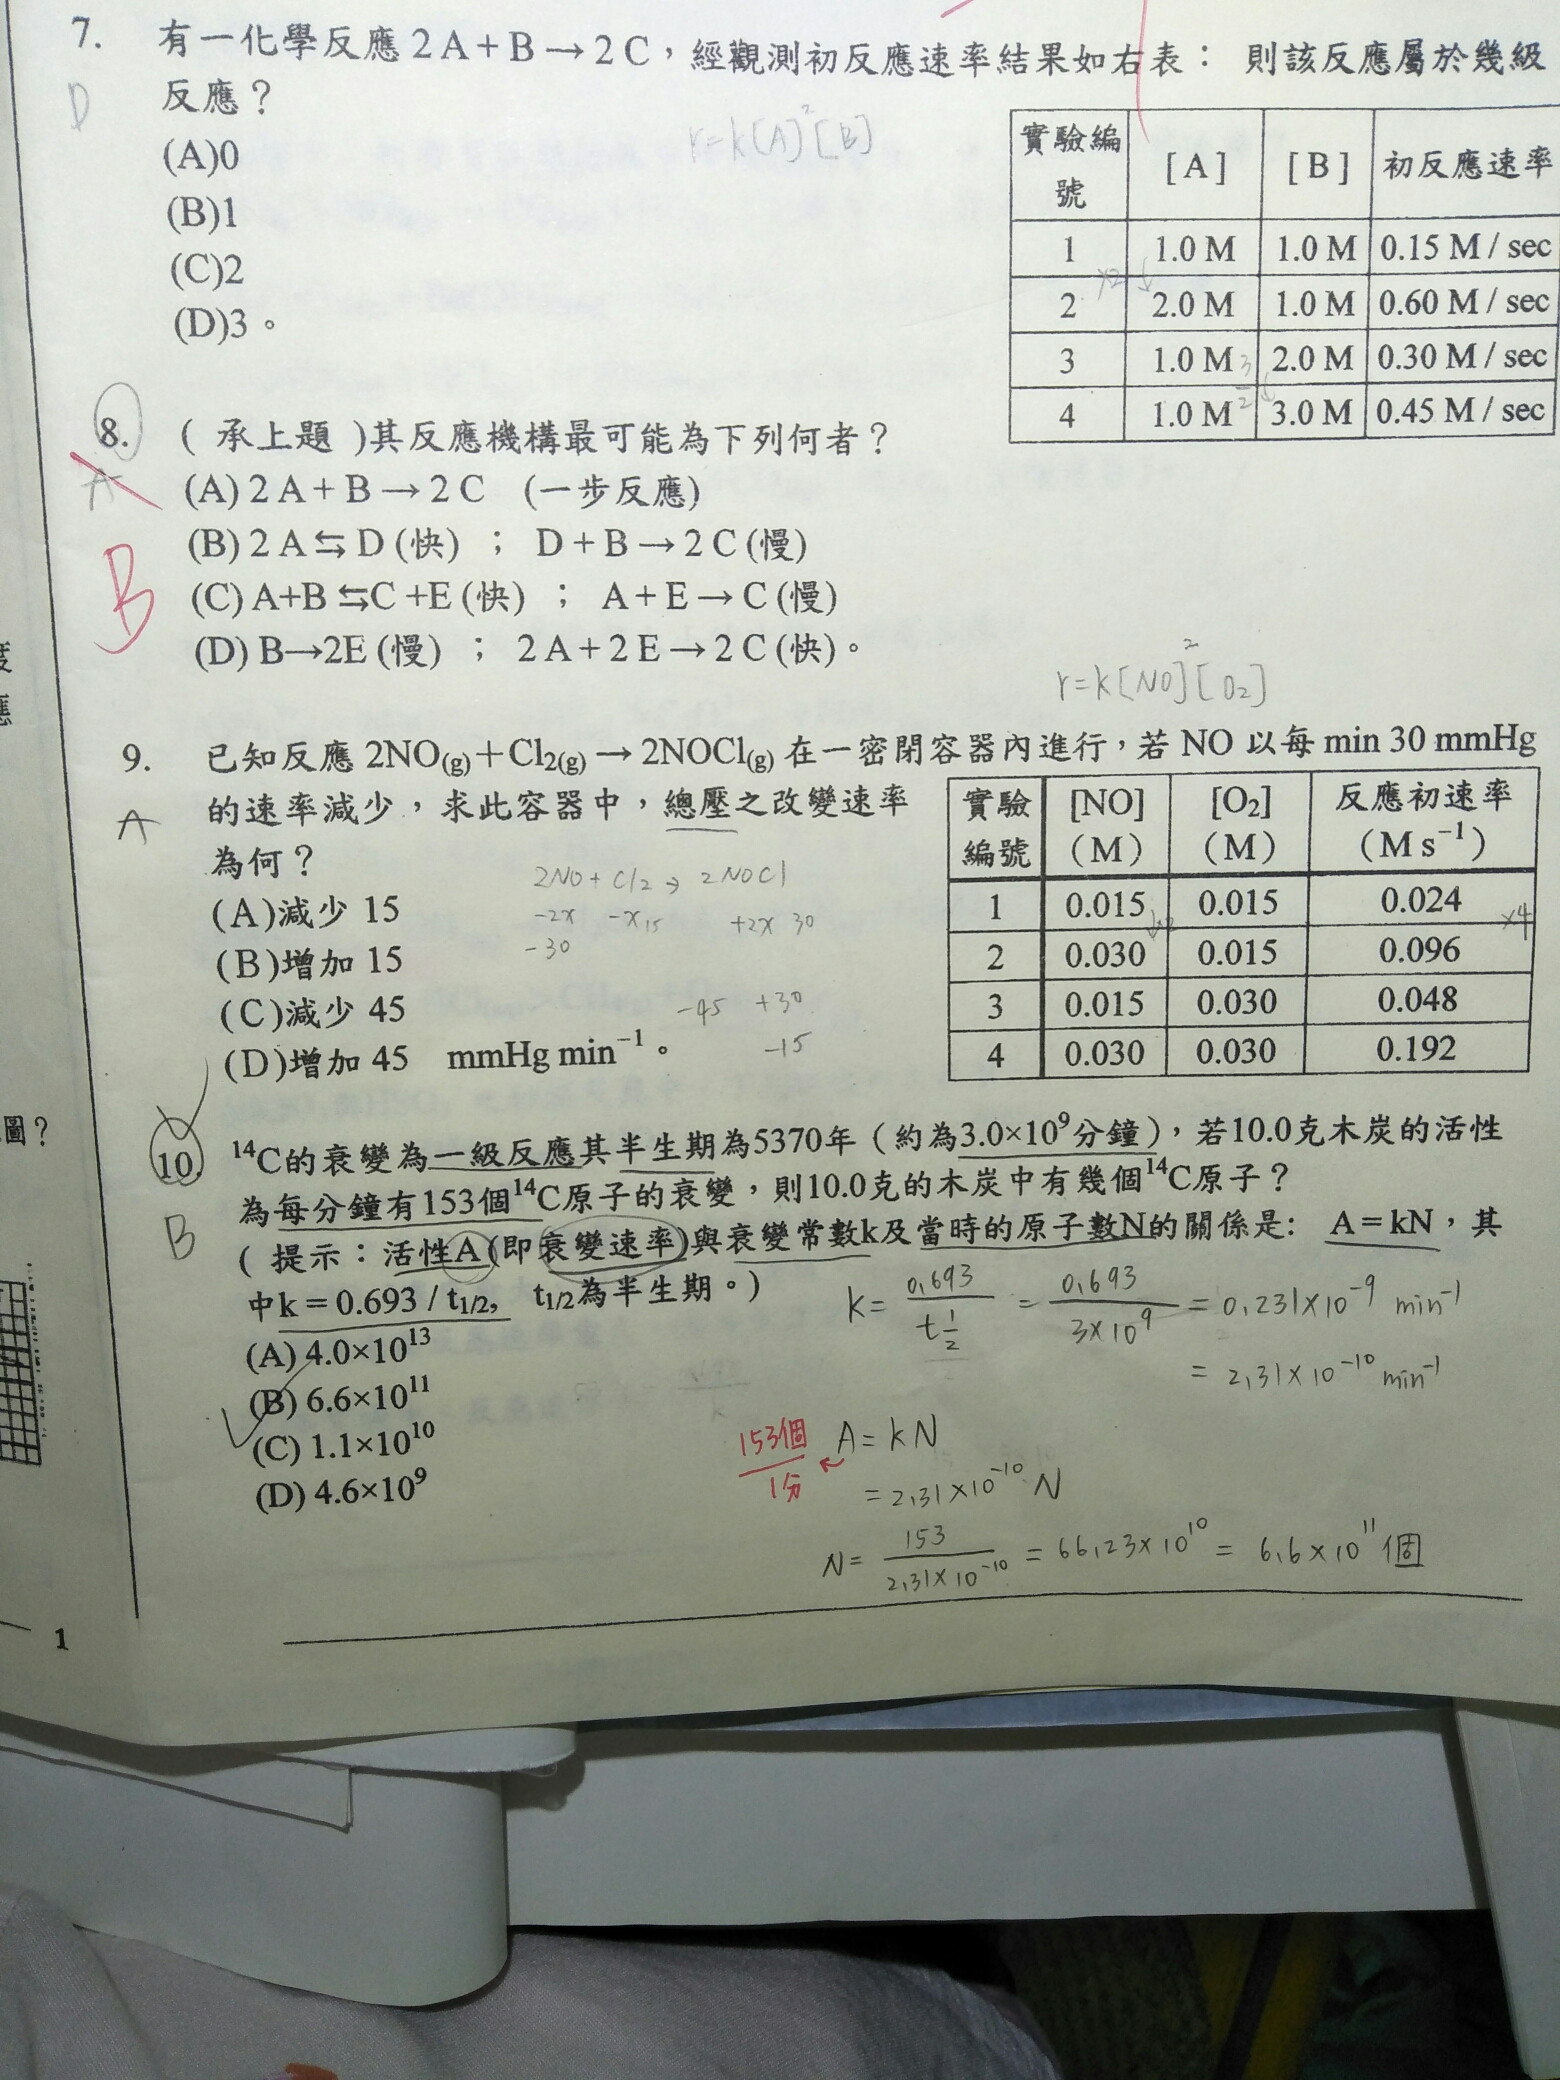 7. 有一化學反應 2 A + B → 2 C，經觀測初反應速率結果如右表： 則該反應屬於幾級
反應？
D
r=k[A]²[B]
(A)0
(B)1
(C)2
(D)3。
實驗編號 [A] [B] 初反應速率
1 1.0 M 1.0 M 0.15 M / sec
×2
2 2.0 M 1.0 M 0.60 M / sec
3 1.0 M 2.0 M 0.30 M / sec
3/2
4 1.0 M 3.0 M 0.45 M / sec
8. ( 承上題 )其反應機構最可能為下列何者？
A
B
(A) 2 A + B → 2 C (一步反應)
(B) 2 A ⇆ D (快) ； D + B → 2 C (慢)
(C) A+B ⇆C +E (快) ； A + E → C (慢)
(D) B→2E (慢) ； 2 A + 2 E → 2 C (快)。
r=k[NO]²[O₂]
9. 已知反應 2NO(g)＋Cl2(g) → 2NOCl(g) 在一密閉容器內進行，若 NO 以每 min 30 mmHg
A
的速率減少，求此容器中，總壓之改變速率
為何？
2NO + Cl2 → 2NOCl
-2x -x 15 +2x 30
-30
(A)減少 15
(B)增加 15
(C)減少 45
-45 +30
(D)增加 45 mmHg min⁻¹。
-15
實驗編號 [NO] (M) [O₂] (M) 反應初速率 (M s⁻¹)
1 0.015 0.015 0.024
×4
2 0.030 0.015 0.096
3 0.015 0.030 0.048
4 0.030 0.030 0.192
10. ¹⁴C的衰變為一級反應其半生期為5370年（約為3.0×10⁹分鐘），若10.0克木炭的活性
B
為每分鐘有153個¹⁴C原子的衰變，則10.0克的木炭中有幾個¹⁴C原子？
( 提示：活性A(即衰變速率)與衰變常數k及當時的原子數N的關係是: A = kN，其
中k = 0.693 / t1/2, t1/2為半生期。)
k= 0.693/t½ = 0.693/3×10⁹ = 0.231×10⁻⁹ min⁻¹
= 2.31×10⁻¹⁰ min⁻¹
(A) 4.0×10¹³
(B) 6.6×10¹¹
(C) 1.1×10¹⁰
(D) 4.6×10⁹
153個/1分 A= kN
= 2.31×10⁻¹⁰ N
N= 153/2.31×10⁻¹⁰ = 66.23×10¹⁰ = 6.6×10¹¹ 個
1
圖？
應